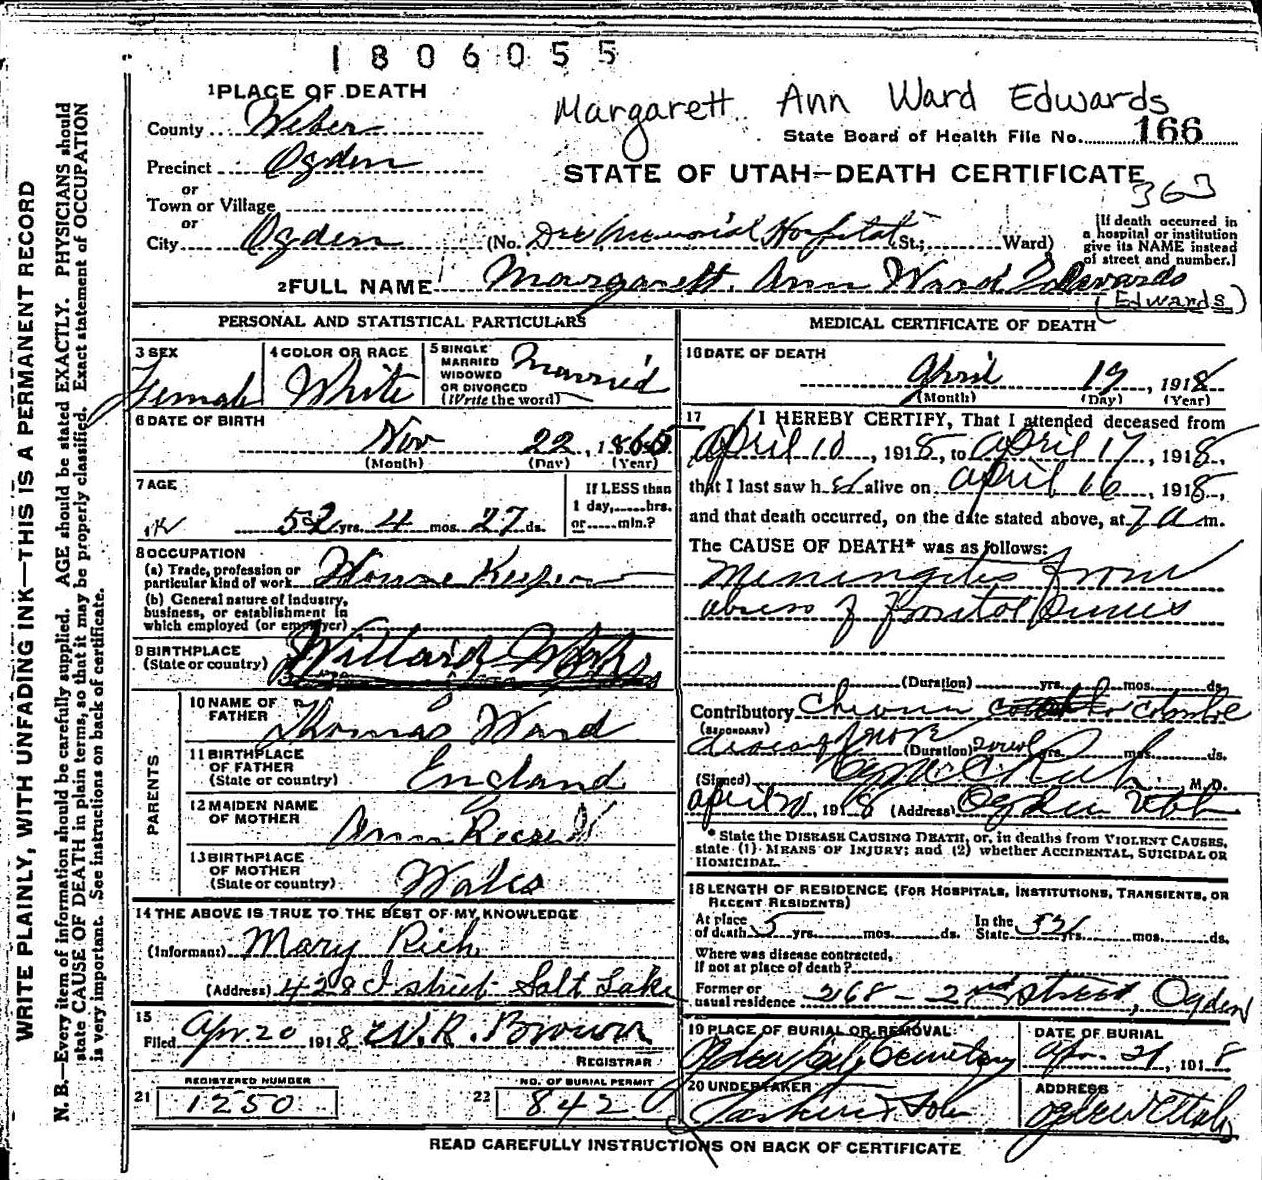 1806055
Margarett Ann Ward Edwards
1 PLACE OF DEATH
County Weber
State Board of Health File No. 166
Precinct Ogden
STATE OF UTAH—DEATH CERTIFICATE
363
or
Town or Village
or
City Ogden (No. Dee Memorial Hospital St.; Ward)
[If death occurred in
a hospital or institution
give its NAME instead
of street and number.]
2 FULL NAME Margarett Ann Ward Edwards
(Edwards)
PERSONAL AND STATISTICAL PARTICULARS
3 SEX
Female
4 COLOR OR RACE
White
5 SINGLE
MARRIED
WIDOWED
OR DIVORCED
(Write the word)
Married
6 DATE OF BIRTH
Nov 22, 1865
(Month) (Day) (Year)
7 AGE
52 yrs. 4 mos. 27 ds.
If LESS than
1 day,......hrs.
or......min.?
8 OCCUPATION
(a) Trade, profession or
particular kind of work House Keeper
(b) General nature of industry,
business, or establishment in
which employed (or employer)
9 BIRTHPLACE
(State or country)
Willard
PARENTS
10 NAME OF
FATHER
Thomas Ward
11 BIRTHPLACE
OF FATHER
(State or country)
England
12 MAIDEN NAME
OF MOTHER
Ann Reese
13 BIRTHPLACE
OF MOTHER
(State or country)
Wales
14 THE ABOVE IS TRUE TO THE BEST OF MY KNOWLEDGE
(Informant) Mary Rich
(Address) 428 I street Salt Lake
15
Filed Apr. 20 1918 W. R. Brown
REGISTRAR
21 REGISTERED NUMBER
1250
22 NO. OF BURIAL PERMIT
842
MEDICAL CERTIFICATE OF DEATH
16 DATE OF DEATH
April 17, 1918
(Month) (Day) (Year)
17 I HEREBY CERTIFY, That I attended deceased from
April 10, 1918, to April 17, 1918,
that I last saw her alive on April 16, 1918,
and that death occurred, on the date stated above, at 7 a m.
The CAUSE OF DEATH* was as follows:
Meningites from
abses of Frontal
(Duration) yrs. mos. ds.
Contributory
(SECONDARY)
(Duration) yrs. mos. ds.
(Signed) M. D.
April 20, 1918 (Address) Ogden Utah
* State the DISEASE CAUSING DEATH, or, in deaths from VIOLENT CAUSES,
state (1) MEANS OF INJURY; and (2) whether ACCIDENTAL, SUICIDAL OR
HOMICIDAL.
18 LENGTH OF RESIDENCE (FOR HOSPITALS, INSTITUTIONS, TRANSIENTS, OR
RECENT RESIDENTS)
At place
of death 5 yrs. mos. ds.
In the
State 52 yrs. mos. ds.
Where was disease contracted,
if not at place of death?
Former or
usual residence 268 - 2nd street, Ogden
19 PLACE OF BURIAL OR REMOVAL
Ogden City Cemetery
DATE OF BURIAL
Apr. 21, 1918
20 UNDERTAKER
ADDRESS
Ogden Utah
READ CAREFULLY INSTRUCTIONS ON BACK OF CERTIFICATE
WRITE PLAINLY, WITH UNFADING INK—THIS IS A PERMANENT RECORD
N. B.—Every item of information should be carefully supplied. AGE should be stated EXACTLY. PHYSICIANS should
state CAUSE OF DEATH in plain terms, so that it may be properly classified. Exact statement of OCCUPATION
is very important. See instructions on back of certificate.